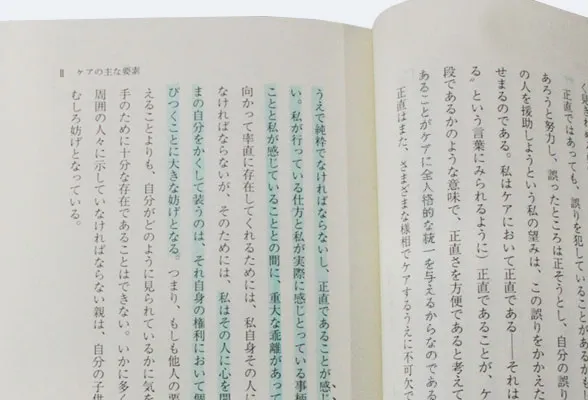 を犯していることがあるか
あろうと努力し、誤ったところは正そうとし、
の人を援助しようという私の望みは、この誤りをかかえた
せまるのである。私はケアにおいて正直である――それは
る〟という言葉にみられるように）正直であることが、ケ
段であるかのような意味で、正直さを方便であると考えて
あることがケアに全人格的な統一を与えるからなのである
「正直はまた、さまざまな様相でケアするうえに不可欠で
うえで純粋でなければならないし、正直であることが感じ
い。私が行っている仕方と私が実際に感じとっている事柄
ことと私が感じていることとの間に、重大な乖離があって
向かって率直に存在してくれるためには、私自身その人に
なければならないが、そのためには、私はその人に心を開
まの自分をかくして装うのは、それ自身の権利において個
びつくことに大きな妨げとなる。つまり、もしも他人の要
えることよりも、自分がどのように見られているかに気を
手のために十分な存在であることはできない。いかに多く
周囲の人々に示していなければならない親は、自分の子供
むしろ妨げとなっている。
Ⅱ ケアの主な要素